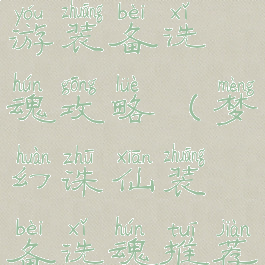 yóu zhuāng bèi xǐ
游装备洗
hún gōng lüè mèng
魂攻略(梦
huàn zhū xiān zhuāng
幻诛仙装
bèi xǐ hún tuī jiàn
备洗魂推荐